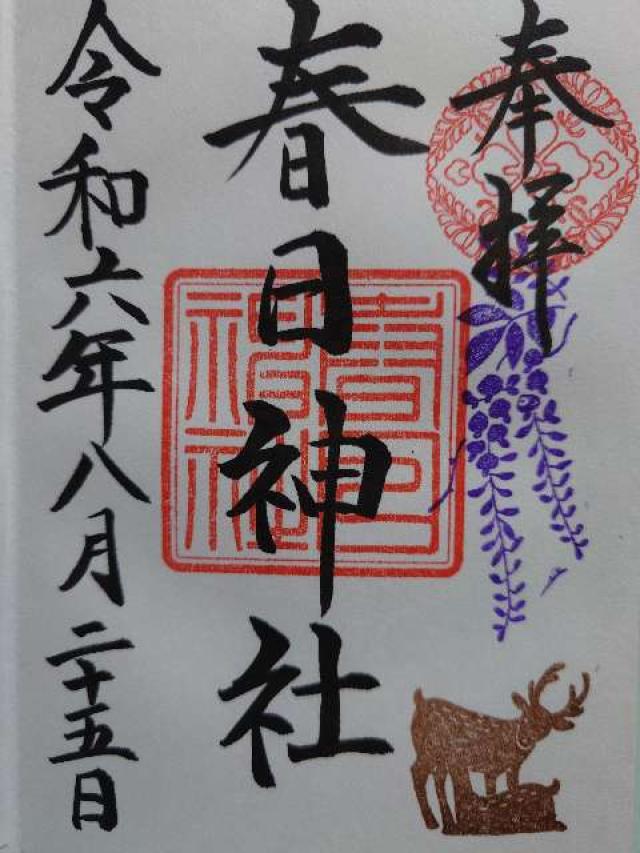 奉拝
春日神社
春日神社
令和六年八月二十五日